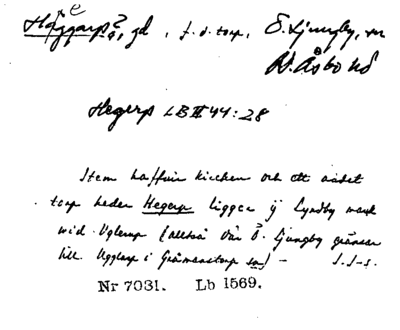 Häggarp?, gd, f. d. torp, Ö. Ljungby, sn
N. Åsbo hd
Hegerp LB III 44:28
Item haffuir kircken och ett aabet
torp heder Hegerp ligger ÿ Lyndby mark
wid Uglerup (alltså där Ö. Ljungby gränsar
till Ugglarp i Gråmanstorp sn) –
Nr 7031. Lb 1569.